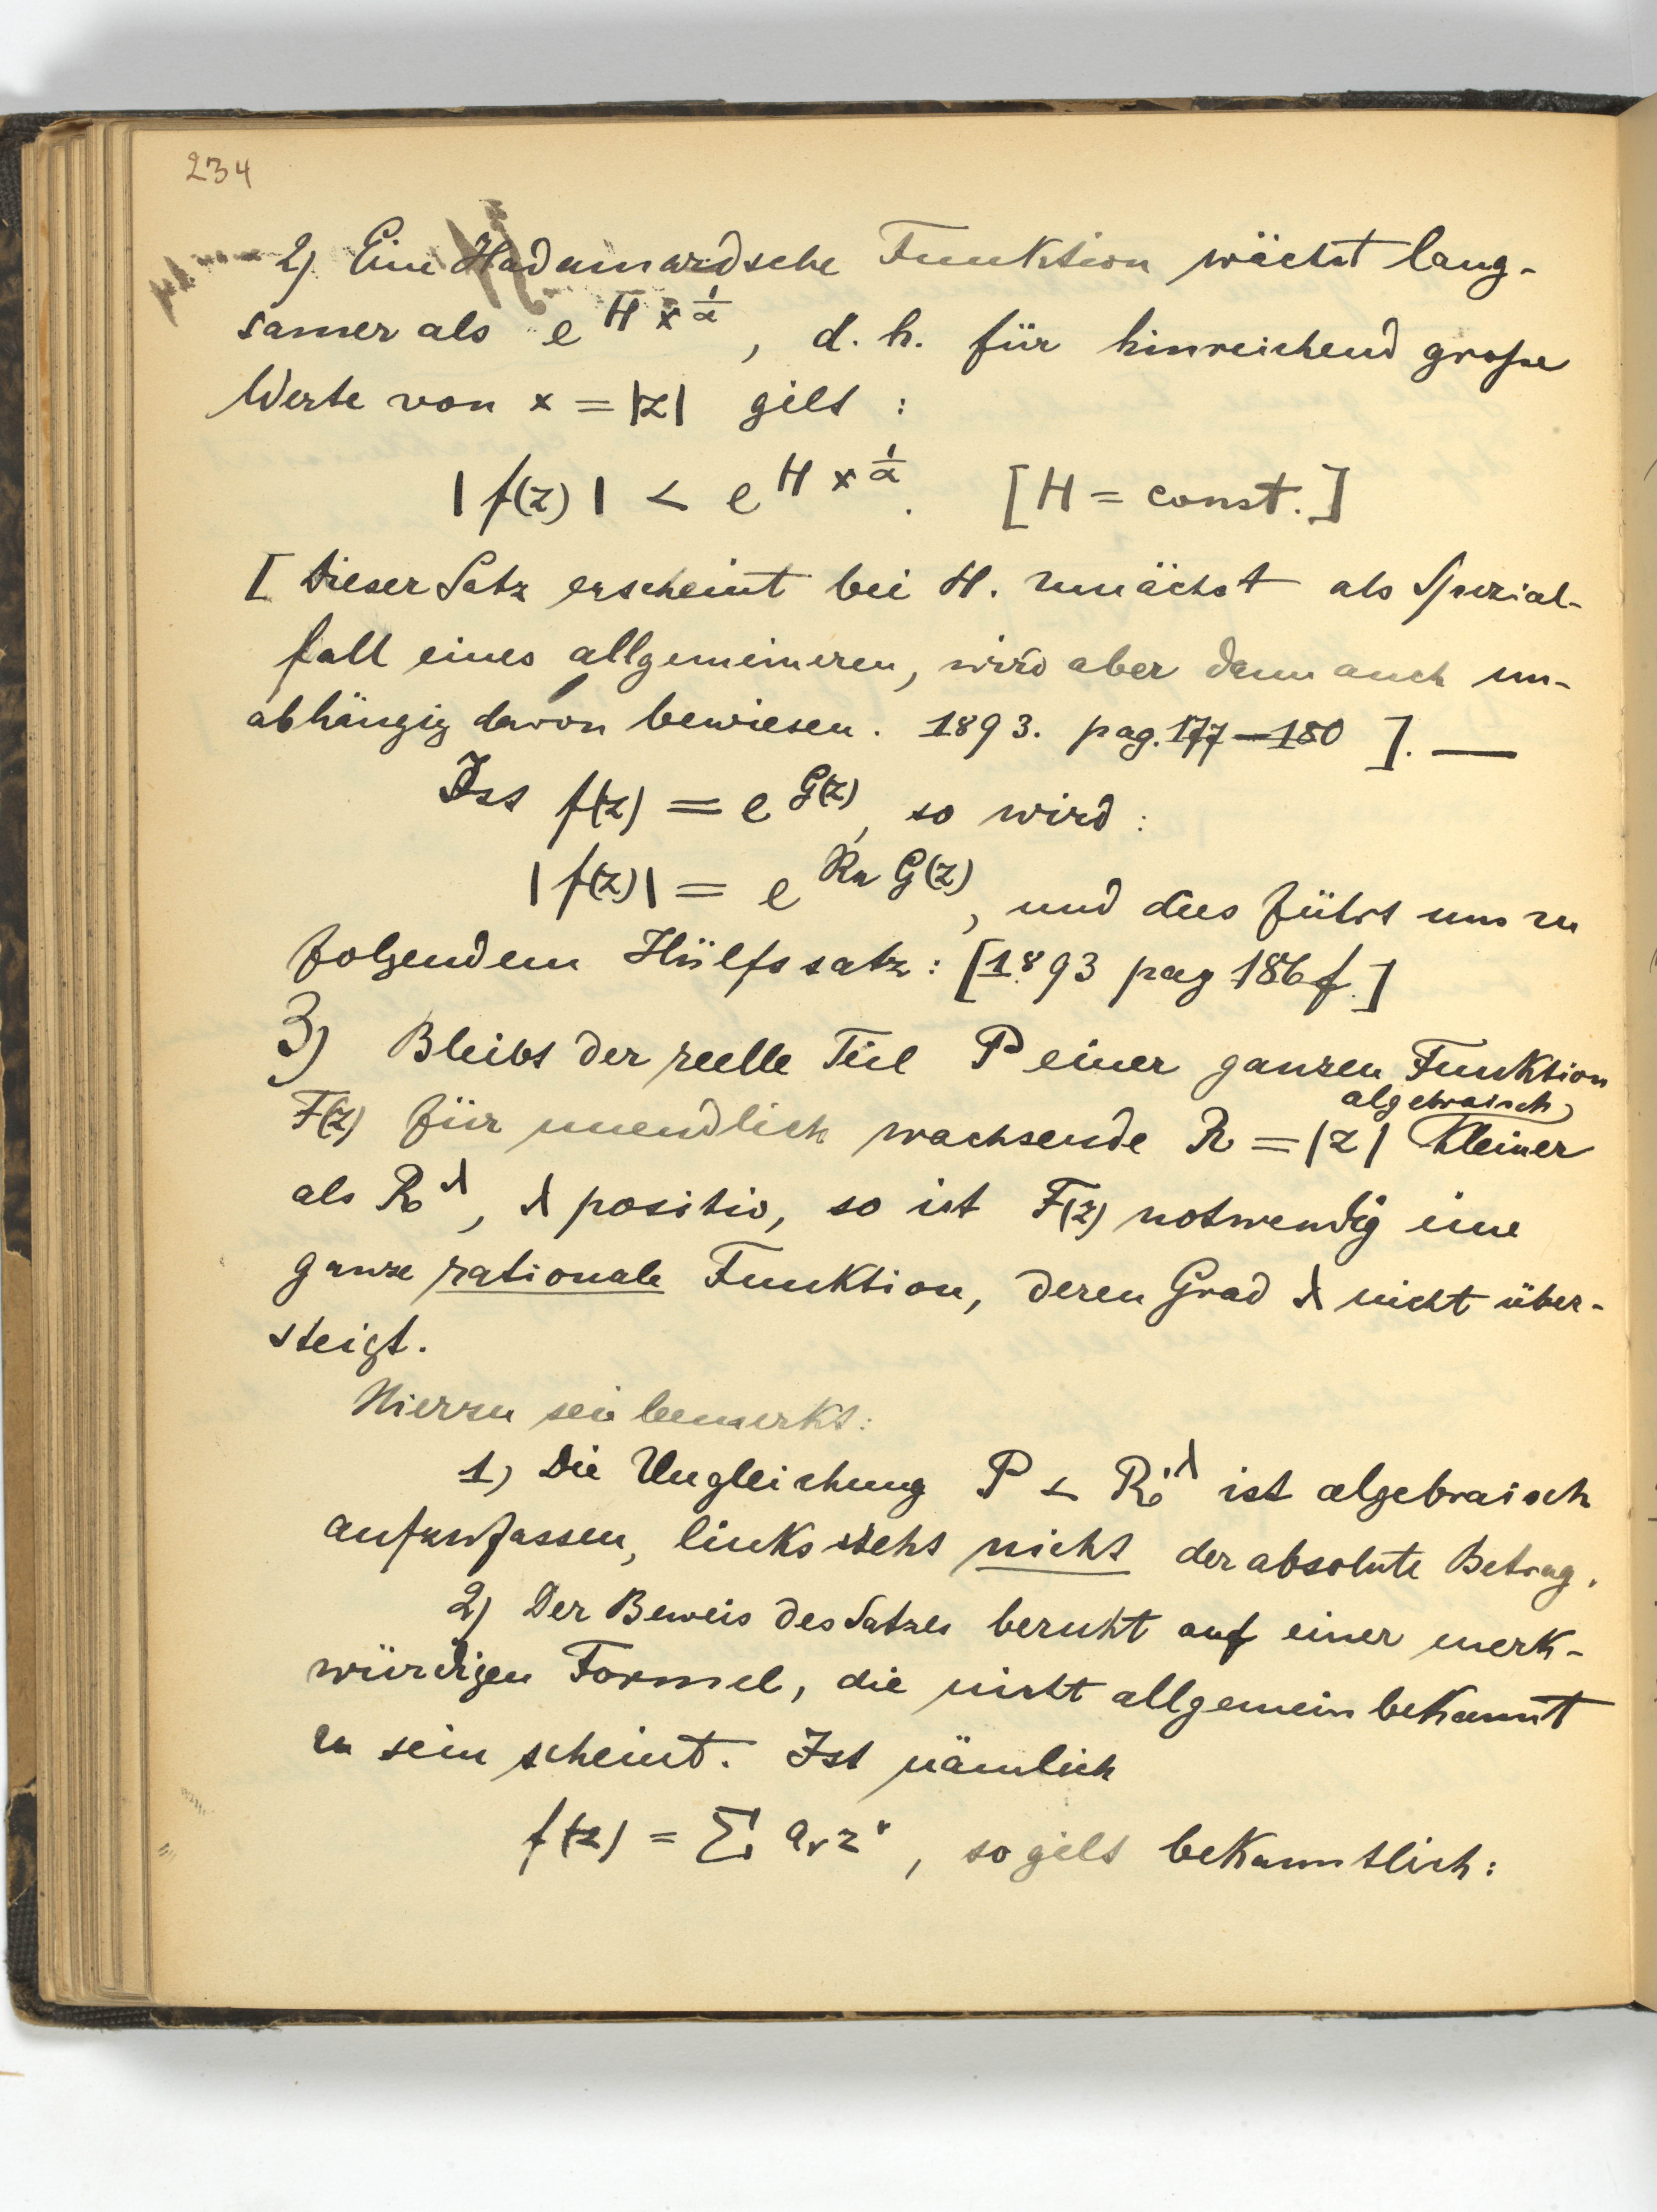 234
2) Eine Hadamardsche Funktion wächst lang-
samer als e^{H x^{1/α}}, d. h. für hinreichend große
Werte von x = |z| gilt :
|f(z)| < e^{H x^{1/α}}. [H = const.]
[Dieser Satz erscheint bei H. zunächst als Spezial-
fall eines allgemeineren, wird aber dann auch un-
abhängig davon bewiesen. 1893. pag. 177–180 ]. —
Ist f(z) = e^{G(z)}, so wird :
|f(z)| = e^{Re G(z)}, und dies führt uns zu
folgendem Hülfssatz : [1893 pag 186 f.]
3) Bleibt der reelle Teil P einer ganzen Funktion
algebraisch
F(z) für unendlich wachsende R = |z| kleiner
als R^λ, λ positiv, so ist F(z) notwendig eine
ganze rationale Funktion, deren Grad λ nicht über-
steigt.
Hierzu sei bemerkt:
1) Die Ungleichung P < R^λ ist algebraisch
aufzufassen, links steht nicht der absolute Betrag.
2) Der Beweis des Satzes beruht auf einer merk-
würdigen Formel, die nicht allgemein bekannt
zu sein scheint. Ist nämlich
f(z) = Σ a_ν z^ν, so gilt bekanntlich :